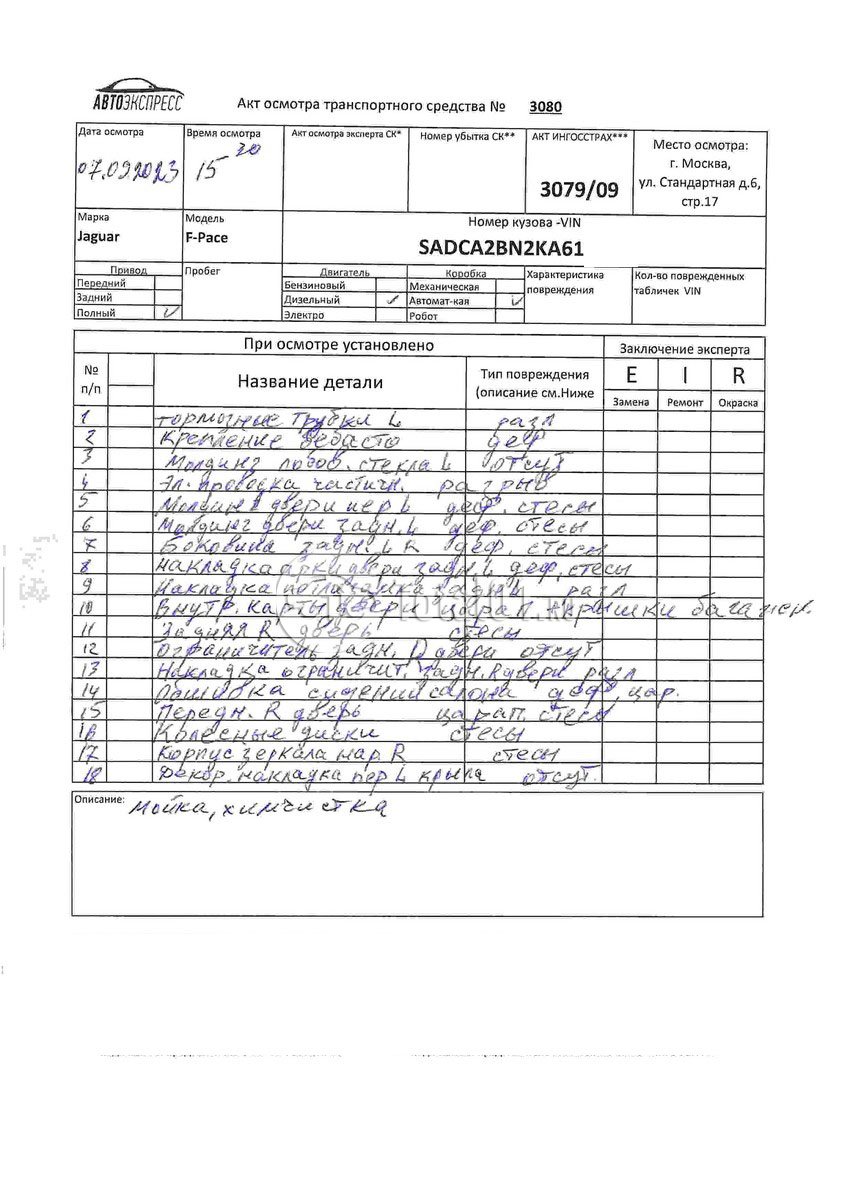 АВТОЭКСПРЕСС
Акт осмотра транспортного средства № 3080
Дата осмотра
07.09.2023
Время осмотра
15 30
Акт осмотра эксперта СК*
Номер убытка СК**
АКТ ИНГОССТРАХ***
3079/09
Место осмотра:
г. Москва,
ул. Стандартная д.6,
стр.17
Марка
Jaguar
Модель
F-Pace
Номер кузова -VIN
SADCA2BN2KA61
Привод
Передний
Задний
Полный ✓
Пробег
Двигатель
Бензиновый
Дизельный ✓
Электро
Коробка
Механическая
Автомат-кая ✓
Робот
Характеристика
повреждения
Кол-во поврежденных
табличек VIN
При осмотре установлено
Заключение эксперта
№
п/п
Название детали
Тип повреждения
(описание см.Ниже
E I R
Замена Ремонт Окраска
1 Тормозные трубки L разл
2 Крепление вебасто деф
3 Молдинг лобов. стекла L отсут
4 Эл. проводка частичн. разрыв
5 Молдинг двери пер L деф. стесы
6 Молдинг двери задн. L деф. стесы
7 Боковина задн. L R деф. стесы
8 Накладка арки двери задн L деф. стесы
9 Накладка задн L разл
10 Внутр. карты двери царап + крышки багажн.
11 Задняя R дверь стесы
12 Ограничитель задн. двери отсут
13 Накладка ограничит. задн. R двери разл
14 Обшивка сидений салона деф, цар.
15 Передн. R дверь царап. стесы
16 Колесные диски стесы
17 Корпус зеркала нар. R стесы
18 Декор. накладка пер L крыла отсут.
Описание: Мойка, химчистка